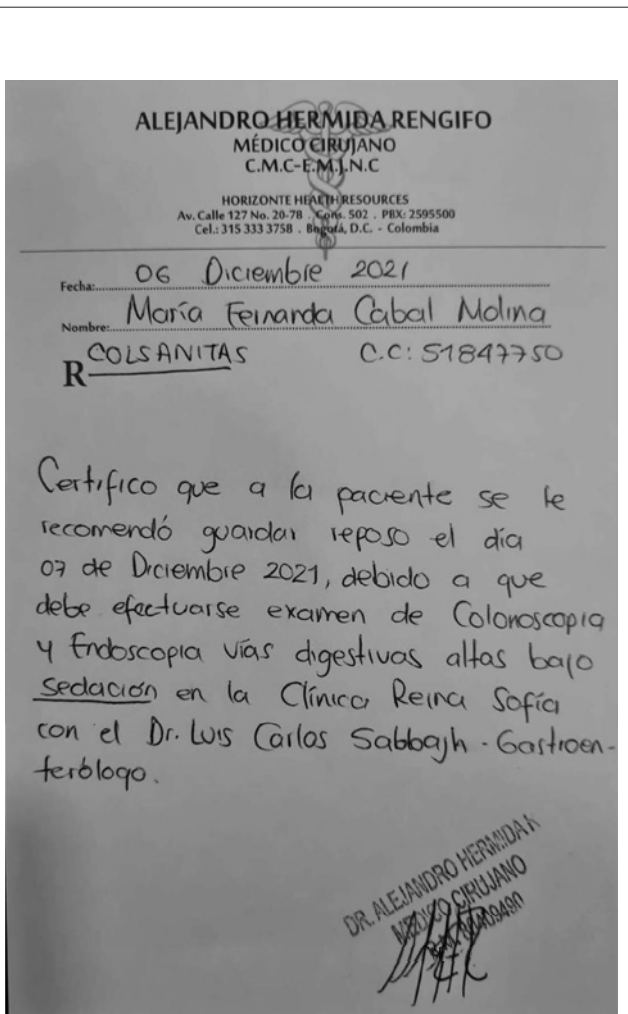 ALEJANDRO HERMIDA RENGIFO
MÉDICO CIRUJANO
C.M.C-E.M.J.N.C
HORIZONTE HEALTH RESOURCES
Av. Calle 127 No. 20-78 . Cons. 502 . PBX: 2595500
Cel.: 315 333 3758 . Bogotá, D.C. - Colombia
Fecha: 06 Diciembre 2021
Nombre: María Fernanda Cabal Molina
R COLSANITAS C.C: 51847750
Certifico que a la paciente se le
recomendó guardar reposo el día
07 de Diciembre 2021, debido a que
debe efectuarse examen de Colonoscopia
y Endoscopia vías digestivas altas bajo
sedación en la Clínica Reina Sofía
con el Dr. Luis Carlos Sabbagh - Gastroen-
terólogo.
DR. ALEJANDRO HERMIDA
MEDICO CIRUJANO